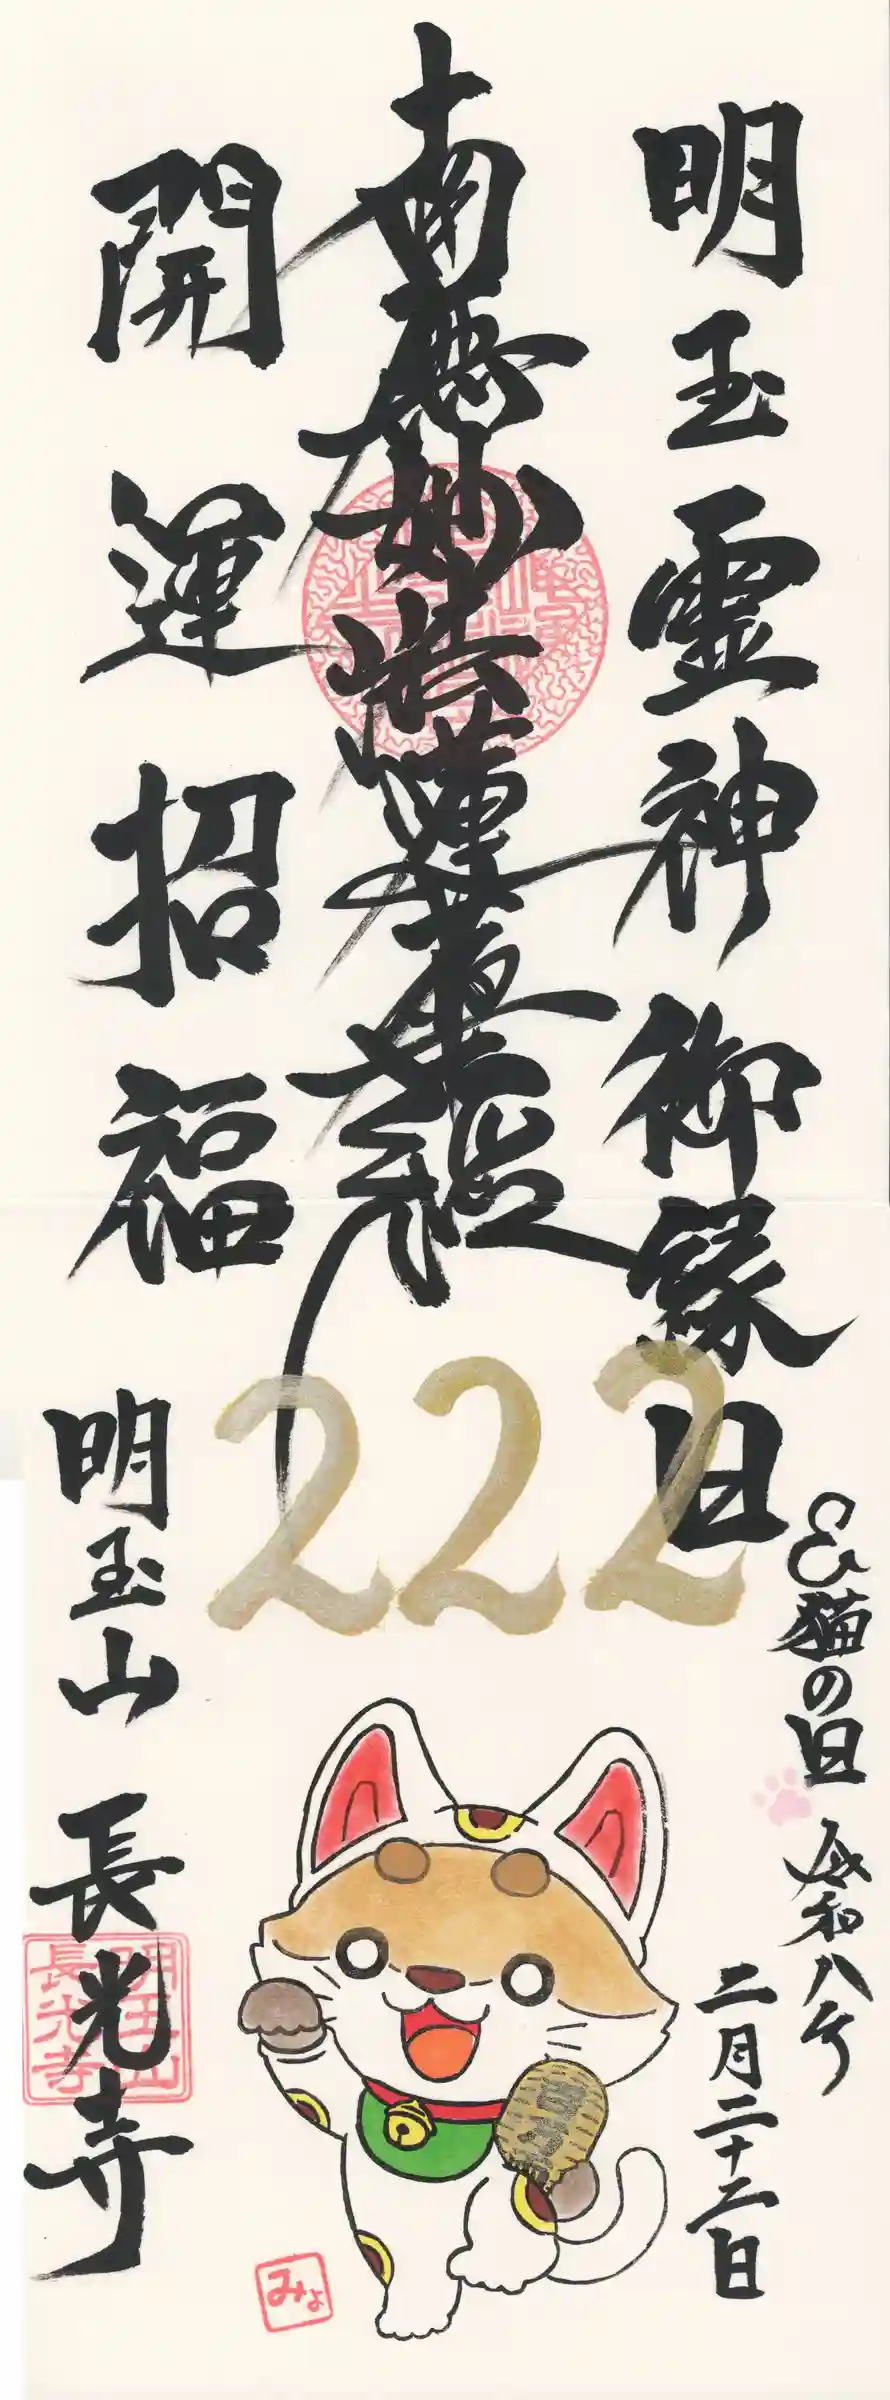 明玉霊神御縁日
&猫の日
令和八年
二月二十二日
南無妙法蓮華経
開運招福
222
明玉山 長光寺
明玉山
長光寺
みょ